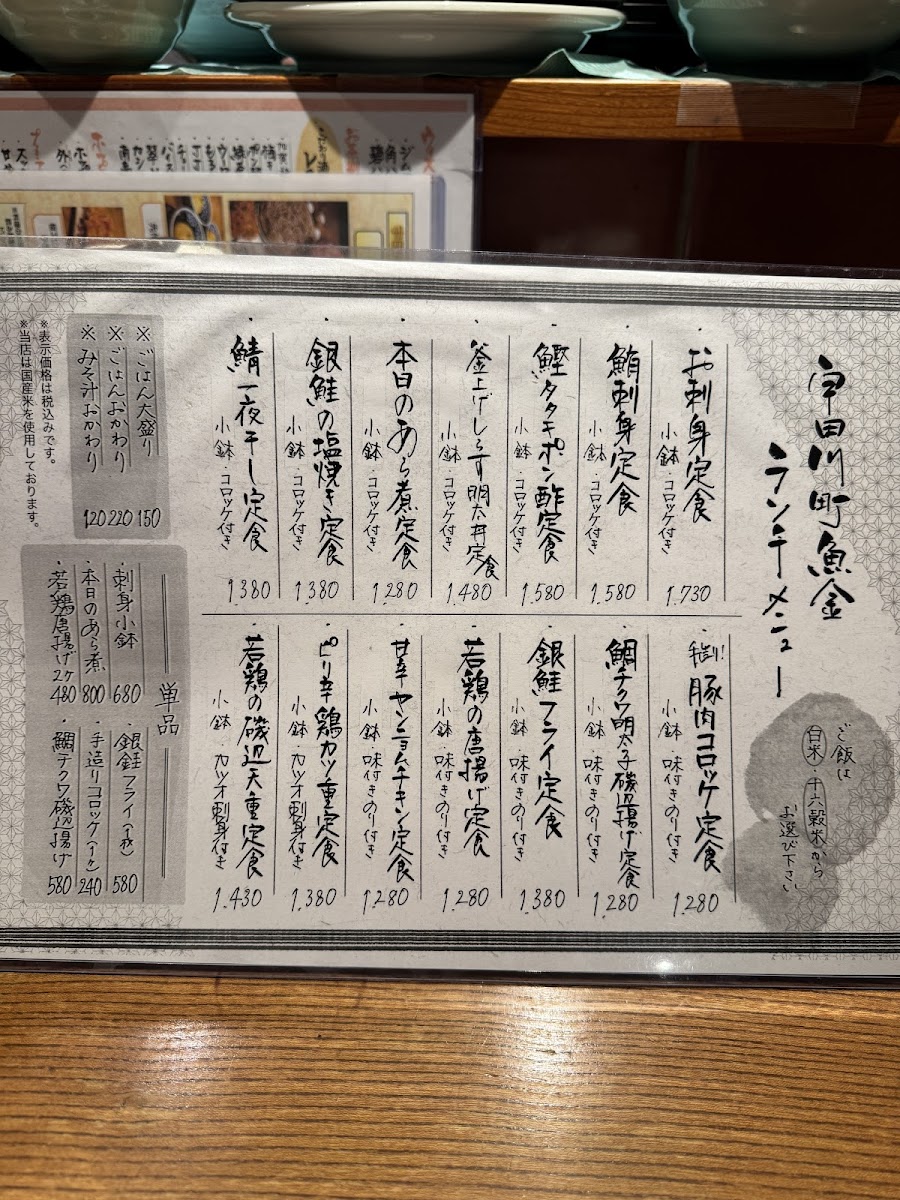 宇田川町魚金
ランチメニュー
ご飯は
白米・十六穀米から
お選び下さい
・お刺身定食
小鉢・コロッケ付き
1.730
・鮪刺身定食
小鉢・コロッケ付き
1.580
・鰹タタキポン酢定食
小鉢・コロッケ付き
1.580
・釜上げしらす明太丼定食
小鉢・コロッケ付き
1.480
・本日のあら煮定食
小鉢・コロッケ付き
1.280
・銀鮭の塩焼き定食
小鉢・コロッケ付き
1.380
・鯖一夜干し定食
小鉢・コロッケ付き
1.380
・豚肉コロッケ定食
小鉢・味付きのり付き
1.280
・鯛チクワ明太子磯辺揚げ定食
小鉢・味付きのり付き
1.280
・銀鮭フライ定食
小鉢・味付きのり付き
1.380
・若鶏の唐揚げ定食
小鉢・味付きのり付き
1.280
・甘辛ヤンニョムチキン定食
小鉢・味付きのり付き
1.280
・ピリ辛鶏カツ重定食
小鉢・カツオ刺身付き
1.380
・若鶏の磯辺天重定食
小鉢・カツオ刺身付き
1.430
※ごはん大盛り
150
※ごはんおかわり
220
※みそ汁おかわり
120
※表示価格は税込みです。
※当店は国産米を使用しております。
単品
・刺身小鉢
680
・本日のあら煮
800
・若鶏唐揚げ2ケ
480
・銀鮭フライ(1枚)
580
・手造りコロッケ(1ケ)
240
・鯛チクワ磯辺揚げ
580